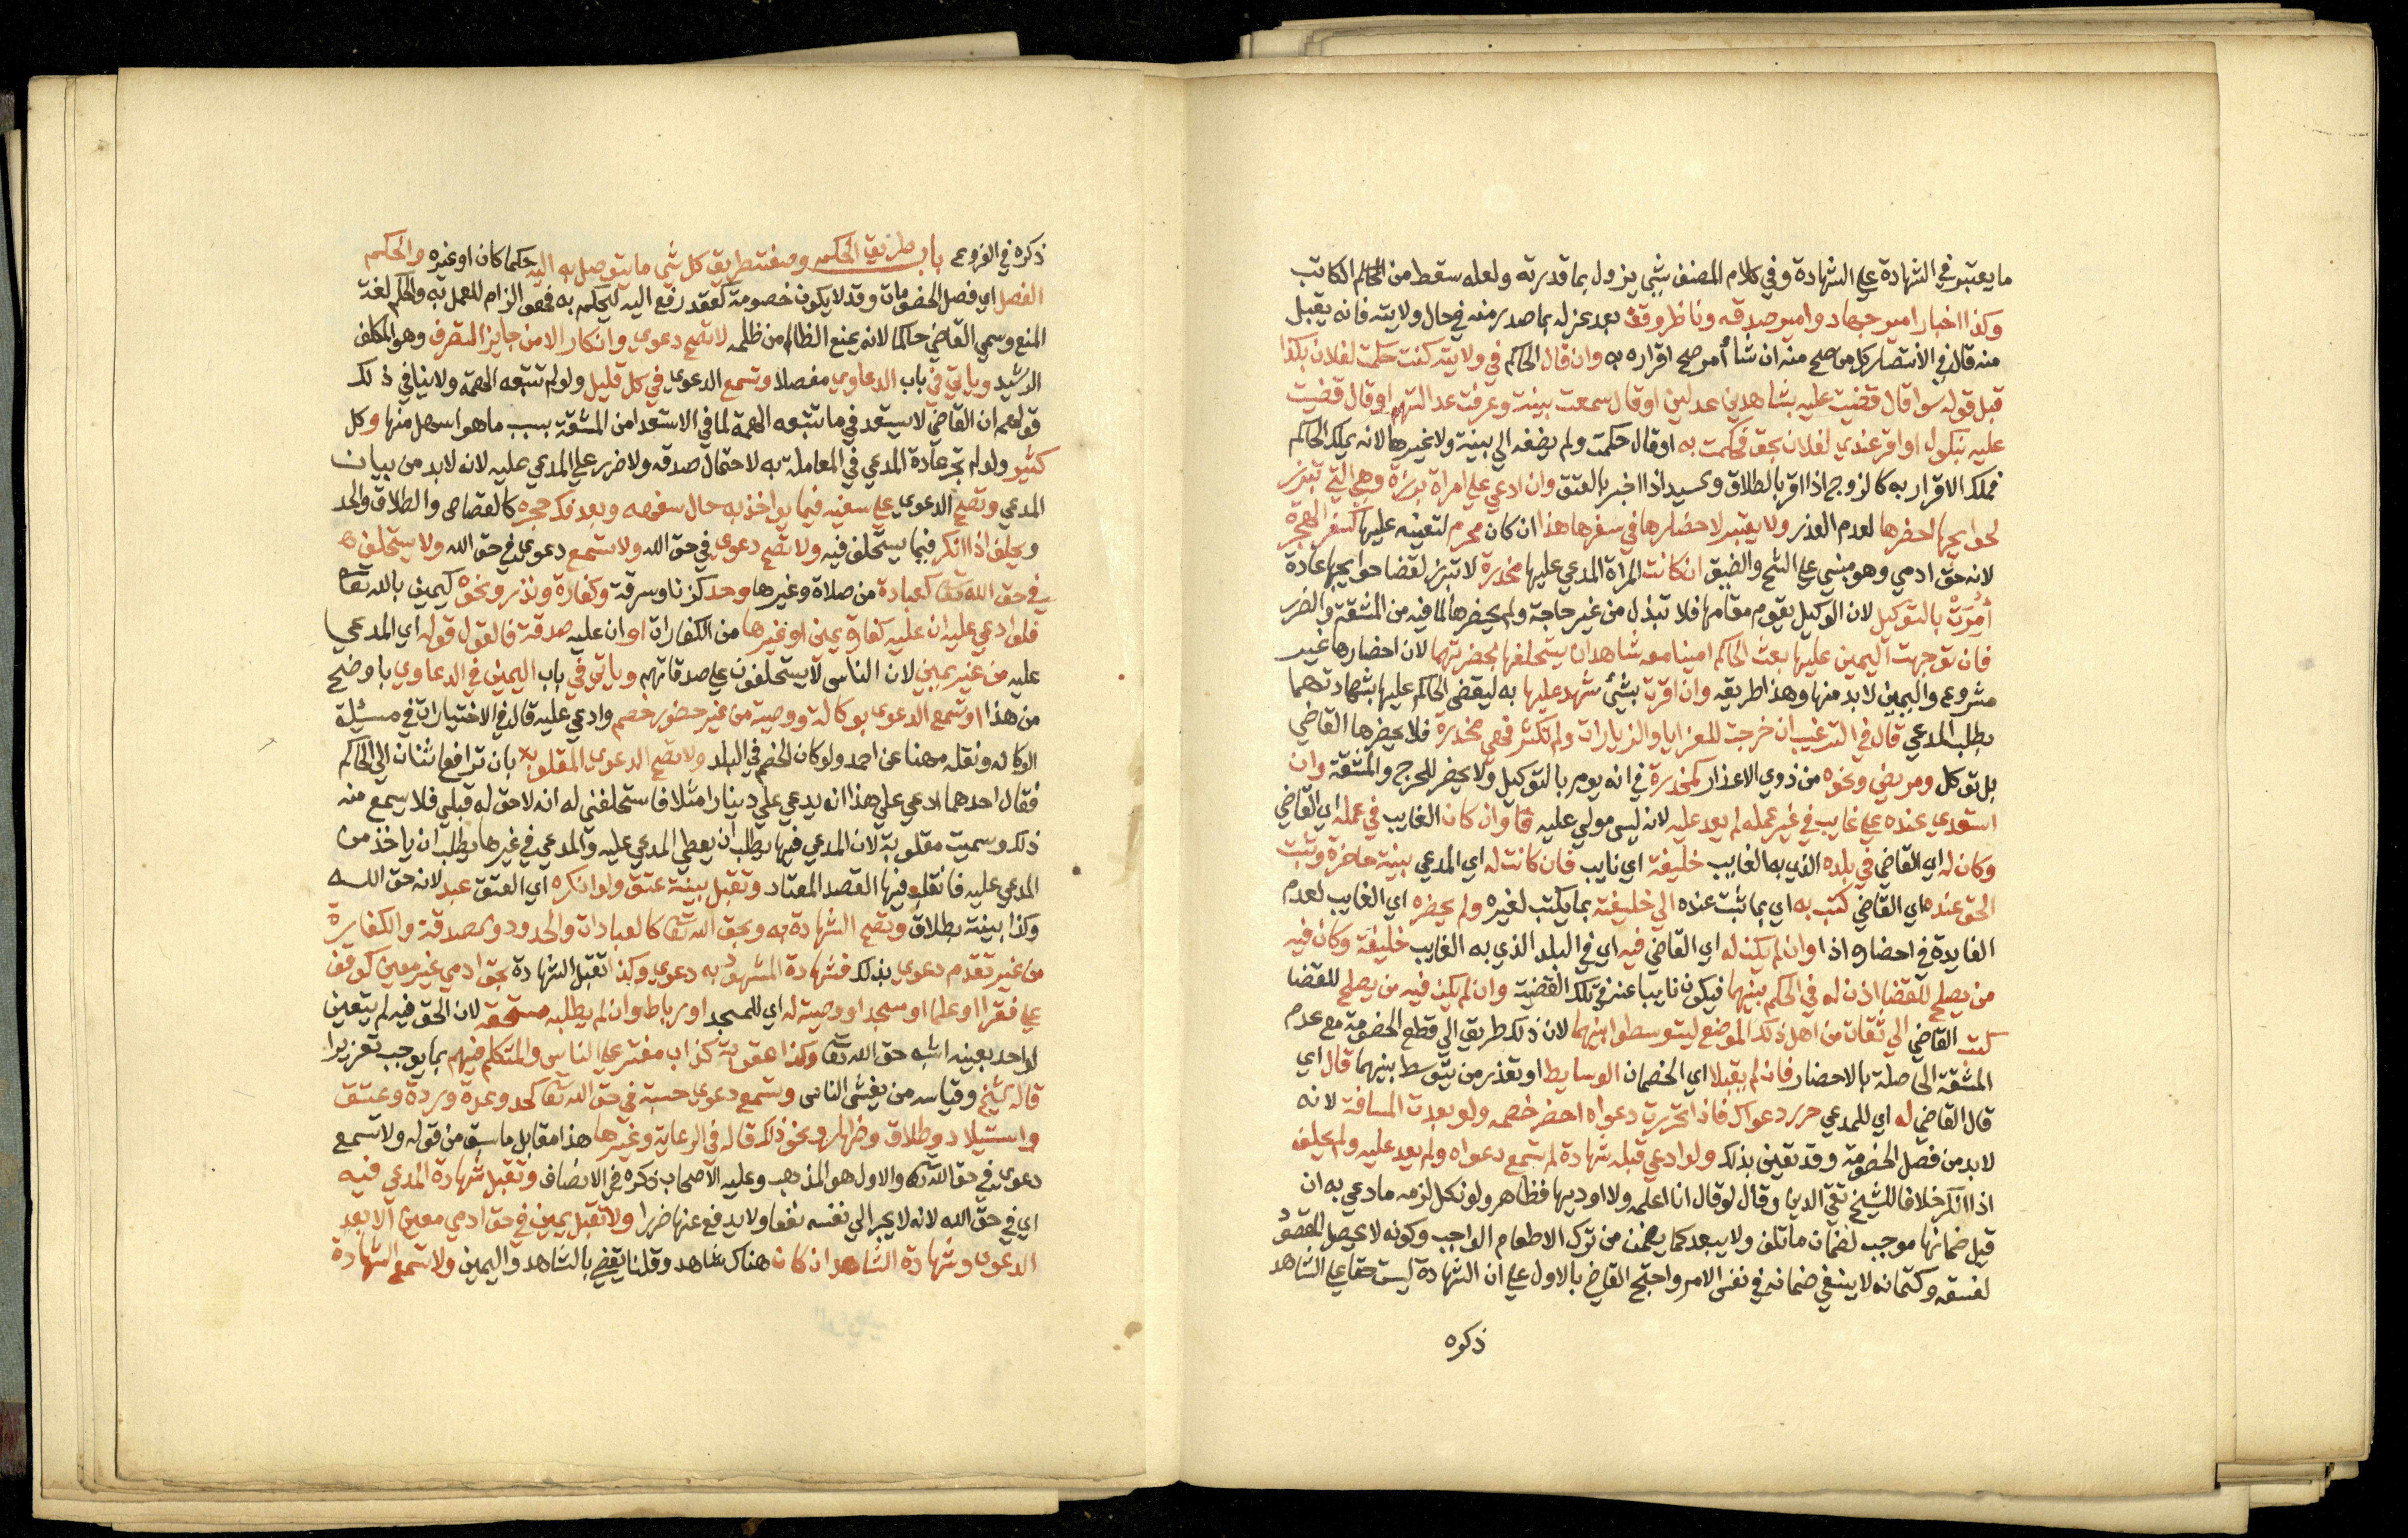 ما يعتبر في الشهادة علي الشهادة وفي كلام المصنف شي يزول بما قدرته ولعله سقط من الكاتب
وكذا اخبار امير جهاد وامير صدقه وناظر وقف بعد عزله بما صدر منه في حال ولايته فانه يقبل
منه قال في الانتصار كل من صح منه ان شا امر صح اقراره به وان قال الحاكم في ولايته كنت حكمت لفلان بكذا
قبل قوله سوا قال قضيت عليه بشاهدين عدلين او قال سمعت بينته وعرفت عدالتهم او قال قضيت
عليه بنكول او اقر عندي لفلان بحق فحكمت به او قال حكمت ولم يضفه الي بينة ولا غيرها لانه يملك الحكم
فملك الاقرار به كالزوج اذا اقر بالطلاق وكسيد اذا اخبر بالعتق وان ادعي علي امراة برزة وهي التي تبرز
لحوايجها احضرها لعدم العذر ولا يعتبر لاحضارها في سفرها هذا ان كان محرم لتعينه عليها كسفر الهجرة
لانه حق ادمي وهو مبني علي الشح والضيق ان كانت المراة المدعي عليها مخدرة لا تبرز لقضا حوايجها عادة
أُمِرَتْ بالتوكيل لان الوكيل يقوم مقامها فلا تبذل من غير حاجة ولم يحضرها لما فيه من المشقة والضرر
فان توجهت اليمين عليها بعث الحاكم امينا معه شاهدان يستحلفها بحضرتهما لان احضارها غير
مشروع واليمين لا بد منها وهذا طريقه وان اقرت بشئ شهد عليها به ليقضي الحاكم عليها بشهادتهما
بطلب المدعي قال في الترغيب ان خرجت للعزايا والزيارات ولم تكثر فهي مخدرة فلا يحضرها القاضي
بل توكل ومريض ونحوه من ذوي الاعذار كمخدرة في انه يومر بالتوكيل ولا يحضر للحرج والمشقة وان
استعدي عنده علي غايب في غير عمله لم يعد عليه لانه ليس مولي عليه وان كان الغايب في عمله اي القاضي
وكان له اي القاضي في بلده الذي به الغايب خليفة اي نايب فان كانت له اي المدعي بينة حاضرة وثبت
الحق عنده اي القاضي كتب به اي بما ثبت عنده الي خليفته بما يكتب لغيره ولم يحضره اي الغايب لعدم
الفايدة في احضاره اذا وان لم يكن له اي القاضي فيه اي في البلد الذي به الغايب خليفة وكان فيه
من يصلح للقضا اذن له في الحكم بينهما فيكون نايبا عنه في تلك القضية وان لم يكن فيه من يصلح للقضا
كتب القاضي الي ثقات من اهل ذلك الموضع ليتوسطوا بينهما لان ذلك طريق الي قطع الخصومة مع عدم
المشقة الحاصلة بالاحضار فان لم يقبلا اي الخصمان الوسايط او تعذر من يتوسط بينهما قال اي
قال القاضي له اي للمدعي حرر دعواك فاذا تحررت دعواه احضر خصمه ولو بعدت المسافة لانه
لا بد من فصل الخصومة وقد تعين بذلك ولو ادعي قبله شهادة لم تسمع دعواه ولم يعد عليه ولم يحلف
اذا انكر خلافا للشيخ تقي الدين وقال لو قال انا اعلمها ولا اوديها فظاهر ولو نكل لزمه ما دعي به ان
قيل ضمانها موجب لضمان ما تلف ولا يبعد كما يضمن من ترك الاطعام الواجب وكونه لا يحصل المقصود
لفسقه وكتمانه لا ينفي ضمانه في نفس الامر واحتج القاضي بالاول علي ان الشهادة ليست حقا علي الشاهد
ذكره
ذكره في الفروع باب طريق الحكم وصفته طريق كل شي ما يتوصل به اليه حكما كان او غيره والحكم
الفصل اي فصل الخصومات وقد لا يكون خصومة كعقد رفع اليه ليحكم به فهو الزام للعمل به والحكم لغة
المنع وسمي القاضي حاكما لانه يمنع الظالم من ظلمه لا تصح دعوي وانكار الا من جايز التصرف وهو المكلف
الرشيد وياتي في باب الدعاوي مفصلا وتسمع الدعوي في كل قليل ولو لم تتبعه الهمة ولا ينافي ذلك
قولهم ان القاضي لا يستعد في ما تتبعه الهمة لما في الاستعدا من المشقة بسبب ما هو اسهل منها وكل
كثير ولو لم تجر عادة المدعي في المعاملة به لاحتمال صدقه ولا ضرر علي المدعي عليه لانه لا بد من بيان
المدعي وتصح الدعوي علي سفيه فيما يواخذ به حال سفهه وبعد فك حجره كالقصاص والطلاق والحد
ويحلف اذا انكر فيما يستحلف فيه ولا تصح دعوي في حق الله ولا تسمع دعوي في حق الله ولا يستحلف
في حق الله تعا كعبادة من صلاة وغيرها وحد كزنا وسرقة وكفارة ونذر ونحوه كيمين بالله تعا
فلو ادعي عليه ان عليه كفارة يمين او غيرها من الكفارات او ان عليه صدقة فالقول قوله اي المدعي
عليه من غير يمين لان الناس لا يستحلفون علي صدقاتهم وياتي في باب اليمين في الدعاوي باوضح
من هذا او تسمع الدعوي بوكالة ووصية من غير حضور خصم وادعي عليه قال في الاختيارات في مسئلة
الوكالة ونقله مهنا عن احمد ولو كان الخصم في البلد ولا تصح الدعوي المقلوبة بان ترافع اثنان الي الحاكم
فقال احدهما ادعي علي هذا انه يدعي علي دينارا مثلا فاستحلفني له انه لا حق له قبلي فلا يسمع منه
ذلك وسميت مقلوبة لان المدعي فيها يطلب ان يعطي المدعي عليه والمدعي في غيرها يطلب ان ياخذ من
المدعي عليه فانقلب فيها القصد المعتاد وتقبل بينة عتق ولو انكره اي العتق عبد لانه حق الله
وكذا بينة بطلاق وتصح الشهادة به وبحق الله تعا كالعبادات والحدود وكصدقة والكفارة
من غير تقدم دعوي بذلك فشهادة المشهود به دعوي وكذا تقبل الشهادة بحق ادمي غير معين كوقف
علي فقرا او علما او مسجد او وصية له اي للمسجد او رباط وان لم يطلبه مستحقه لان الحق فيه لم يتعين
لواحد بعينه اشبه حق الله تعا وكذا عقوبة كذاب مفتر علي الناس والمتكلم فيهم بما يوجب تعزيرا
قاله شيخ وقياسه من يغش الناس وتسمع دعوي حسبة في حق الله تعا كحد وعدة وردة وعتق
واستيلاد وطلاق وظهار ونحو ذلك قاله في الرعاية وغيرها هذا مقابل ما سبق من قوله ولا تسمع
دعوي في حق الله تعا والاول هو المذهب وعليه الاصحاب ذكره في الانصاف وتقبل شهادة المدعي فيه
اي في حق الله لانه لا يجر الي نفسه نفعا ولا يدفع عنها ضررا ولا تقبل يمين في حق ادمي معين الا بعد
الدعوي وشهادة الشاهد ان كان هناك شاهد وقلنا يقضي بالشاهد واليمين ولا تسمع الشهادة